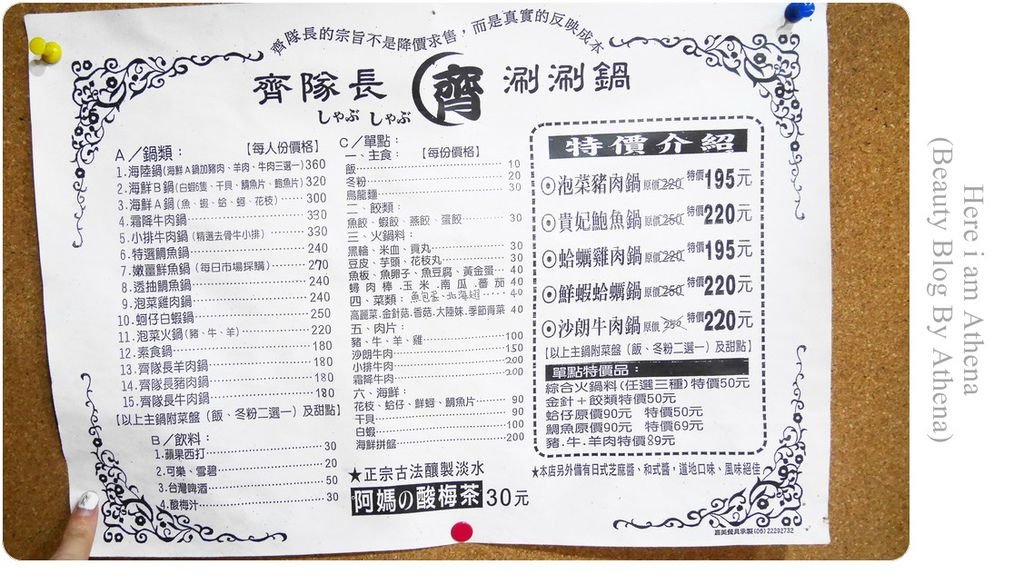 齊隊長的宗旨不是降價求售，而是真實的反映成本
齊隊長 齊 涮涮鍋
しゃぶ しゃぶ
A／鍋類： 【每人份價格】
1.海陸鍋(海鮮A鍋加豬肉、羊肉、牛肉三選一)360
2.海鮮B鍋(白蝦6隻、干貝、鯛魚片、鮑魚片)320
3.海鮮A鍋(魚、蝦、蛤、蟳、花枝)300
4.霜降牛肉鍋330
5.小排牛肉鍋(精選去骨牛小排)330
6.特選鯛魚鍋240
7.嫩薑鮮魚鍋(每日市場採購)270
8.透抽鯛魚鍋240
9.泡菜雞肉鍋240
10.蚵仔白蝦鍋250
11.泡菜火鍋(豬、牛、羊)220
12.素食鍋180
13.齊隊長羊肉鍋180
14.齊隊長豬肉鍋180
15.齊隊長牛肉鍋180
【以上主鍋附菜盤（飯、冬粉二選一）及甜點】
B／飲料：
1.蘋果西打30
2.可樂、雪碧20
3.台灣啤酒50
4.酸梅汁30
C／單點：
一、主食： 【每份價格】
飯10
冬粉20
烏龍麵30
二、餃類：
魚餃、蝦餃、燕餃、蛋餃30
三、火鍋料：
黑輪、米血、貢丸30
豆皮、芋頭、花枝丸30
魚板、魚卵子、魚豆腐、黃金蛋40
蟳肉棒.玉米.南瓜.蕃茄 40
四、菜類：魚包蛋、北海翅40
高麗菜.金針菇.香菇.大陸妹.季節青菜 40
五、肉片：
豬、牛、羊、雞100
沙朗牛肉150
小排牛肉200
霜降牛肉200
六、海鮮：
花枝、蛤仔、鮮蟳、鯛魚片90
干貝90
白蝦100
海鮮拼盤200
★正宗古法釀製淡水
阿媽の酸梅茶30元
特價介紹
⊙泡菜豬肉鍋 原價220 特價195元
⊙貴妃鮑魚鍋 原價250 特價220元
⊙蛤蠣雞肉鍋 原價220 特價195元
⊙鮮蝦蛤蠣鍋 原價250 特價220元
⊙沙朗牛肉鍋 原價250 特價220元
【以上主鍋附菜盤（飯、冬粉二選一）及甜點】
單點特價品：
綜合火鍋料(任選三種)特價50元
金針＋餃類特價50元
蛤仔原價90元 特價50元
鯛魚原價90元 特價69元
豬.牛.羊肉特價89元
★本店另外備有日式芝麻醬、和式醬，道地口味、風味絕佳
嘉美餐具承製(06)22292732
Here i am Athena
(Beauty Blog By Athena)